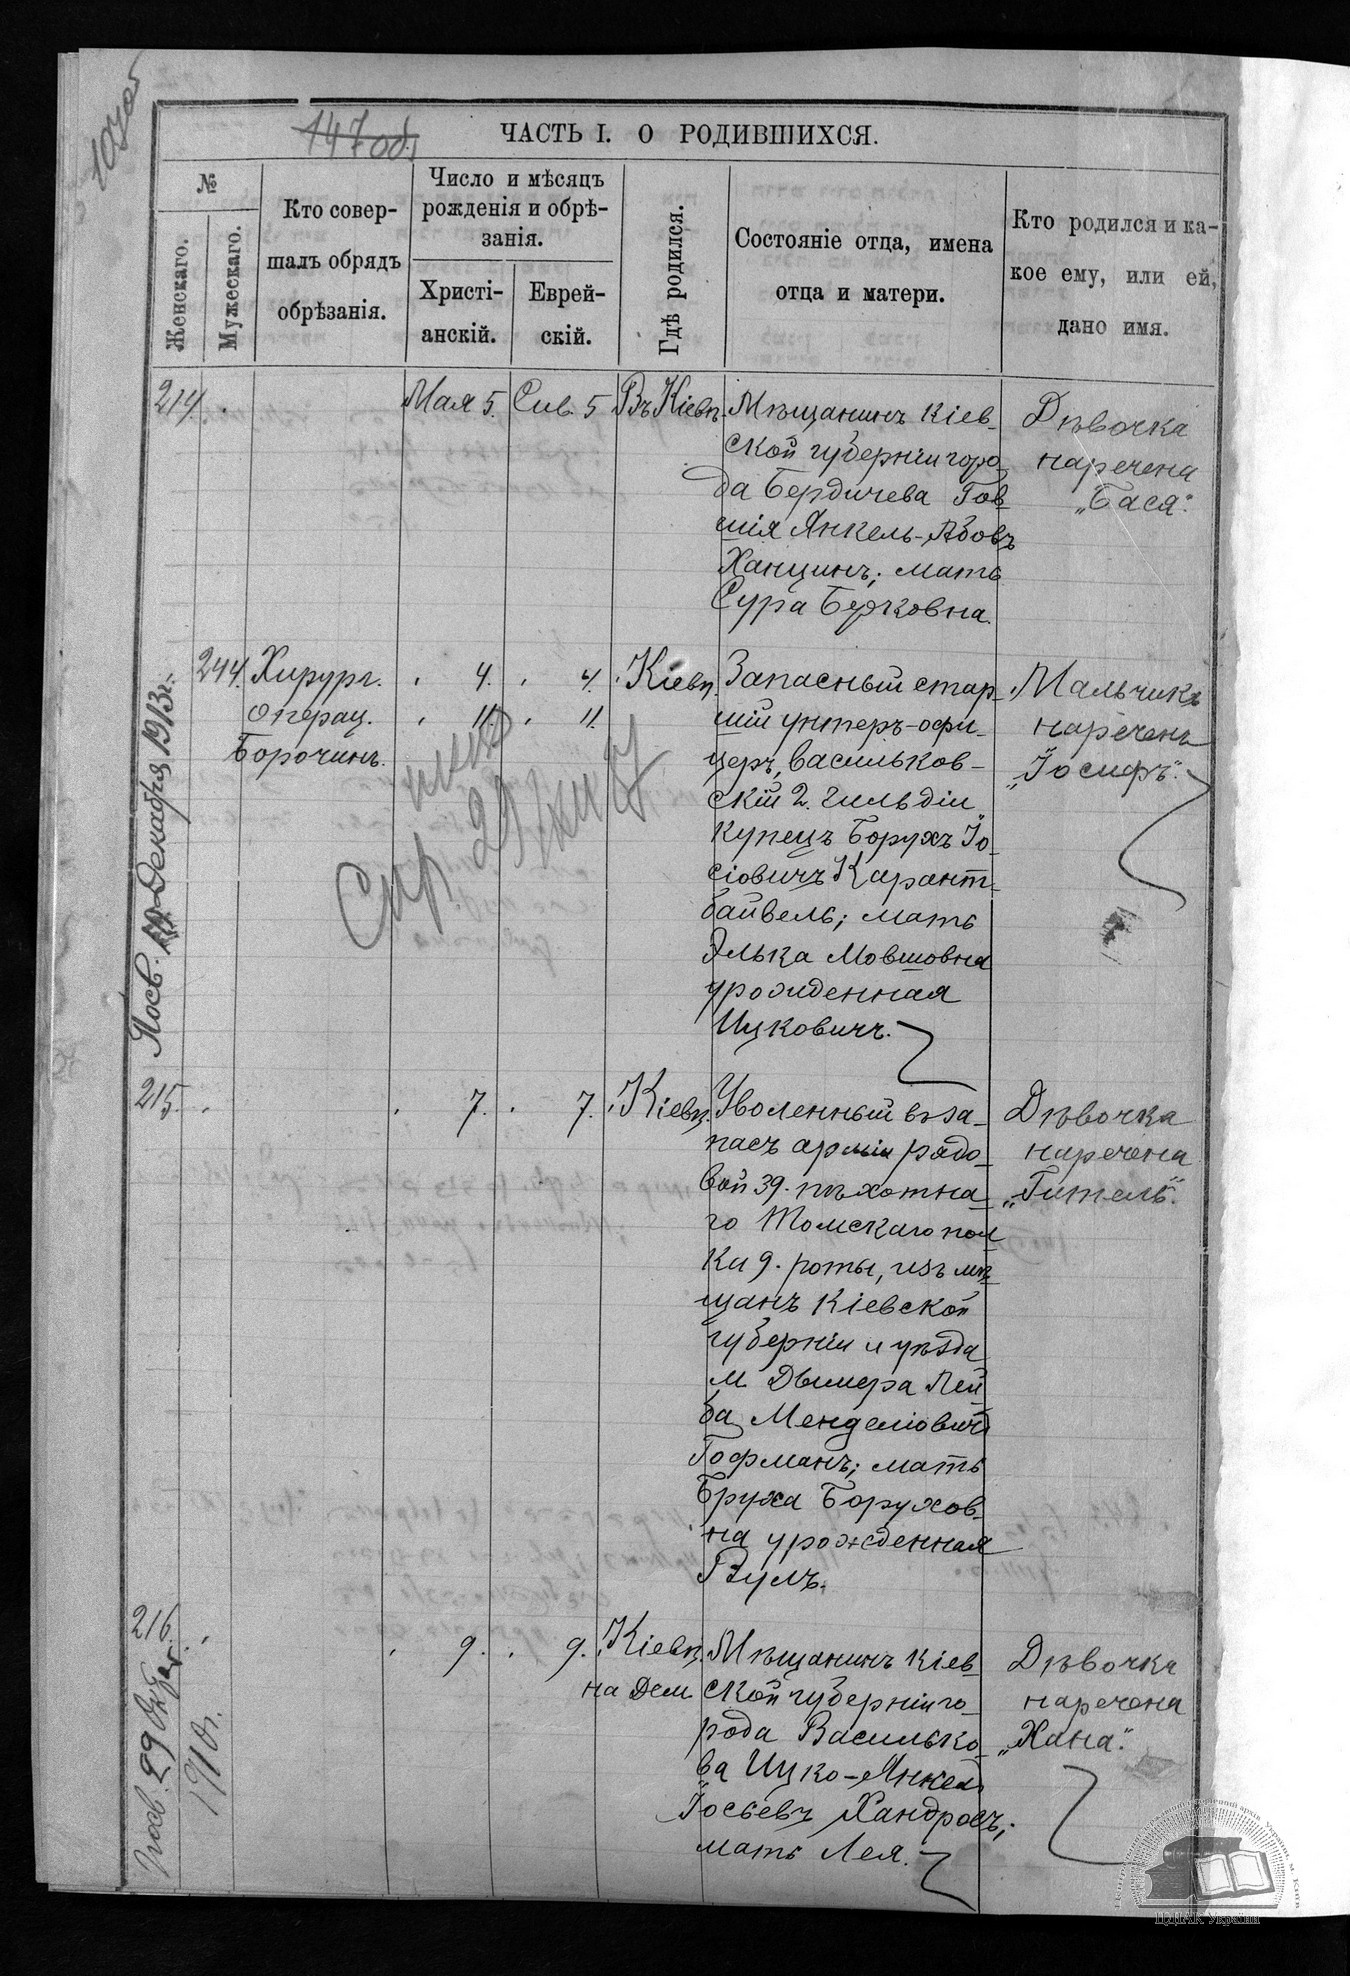 107об
147об.
ЧАСТЬ I. О РОДИВШИХСЯ.
№
Женскаго.
Мужескаго.
Кто совер-
шалъ обрядъ
обрѣзанія.
Число и мѣсяцъ
рожденія и обрѣ-
занія.
Христі-
анскій.
Еврей-
скій.
Гдѣ родился.
Состояніе отца, имена
отца и матери.
Кто родился и ка-
кое ему, или ей,
дано имя.
214.
Мая 5.
Сив. 5
Въ Кіевѣ.
Мѣщанинъ Кіев-
ской губерніи горо-
да Бердичева Гов-
шія Янкель-Абовъ
Ханцинъ; мать
Сура Берковна.
Дѣвочка
наречена
„Бася“.
244.
Хирург.
Операц.
Борочинъ.
4.
11.
4.
11.
Кіевѣ.
Запасный стар-
шій унтеръ-офи-
церъ, Васильков-
скій 2. гильдіи
купецъ Борухъ Іо-
сіовичъ Карант-
байвель; мать
Элька Мовшовна
урожденная
Ицковичъ.
Мальчикъ
нареченъ
„Іосифъ“.
Декабря 1913г.
215.
7.
7.
Кіевѣ.
Уволенный въ за-
пасъ арміи рядо-
вой 39. пѣхотна-
го Томскаго пол-
ка 9. роты, изъ мѣ-
щанъ Кіевской
губерніи и уѣзда
м. Дымера Лей-
ба Менделіовичъ
Гофманъ; мать
Бруха Борухов-
на урожденная
Вулъ.
Дѣвочка
наречена
„Гитель“.
216.
9.
9.
Кіевѣ.
на Дем.
Мѣщанинъ Кіев-
ской губерніи го-
рода Василько-
ва Ицко-Янкель
Іосьевъ Хандросъ;
мать Лея.
Дѣвочка
наречена
„Хана“.
29
1910г.
ЦДІАК України